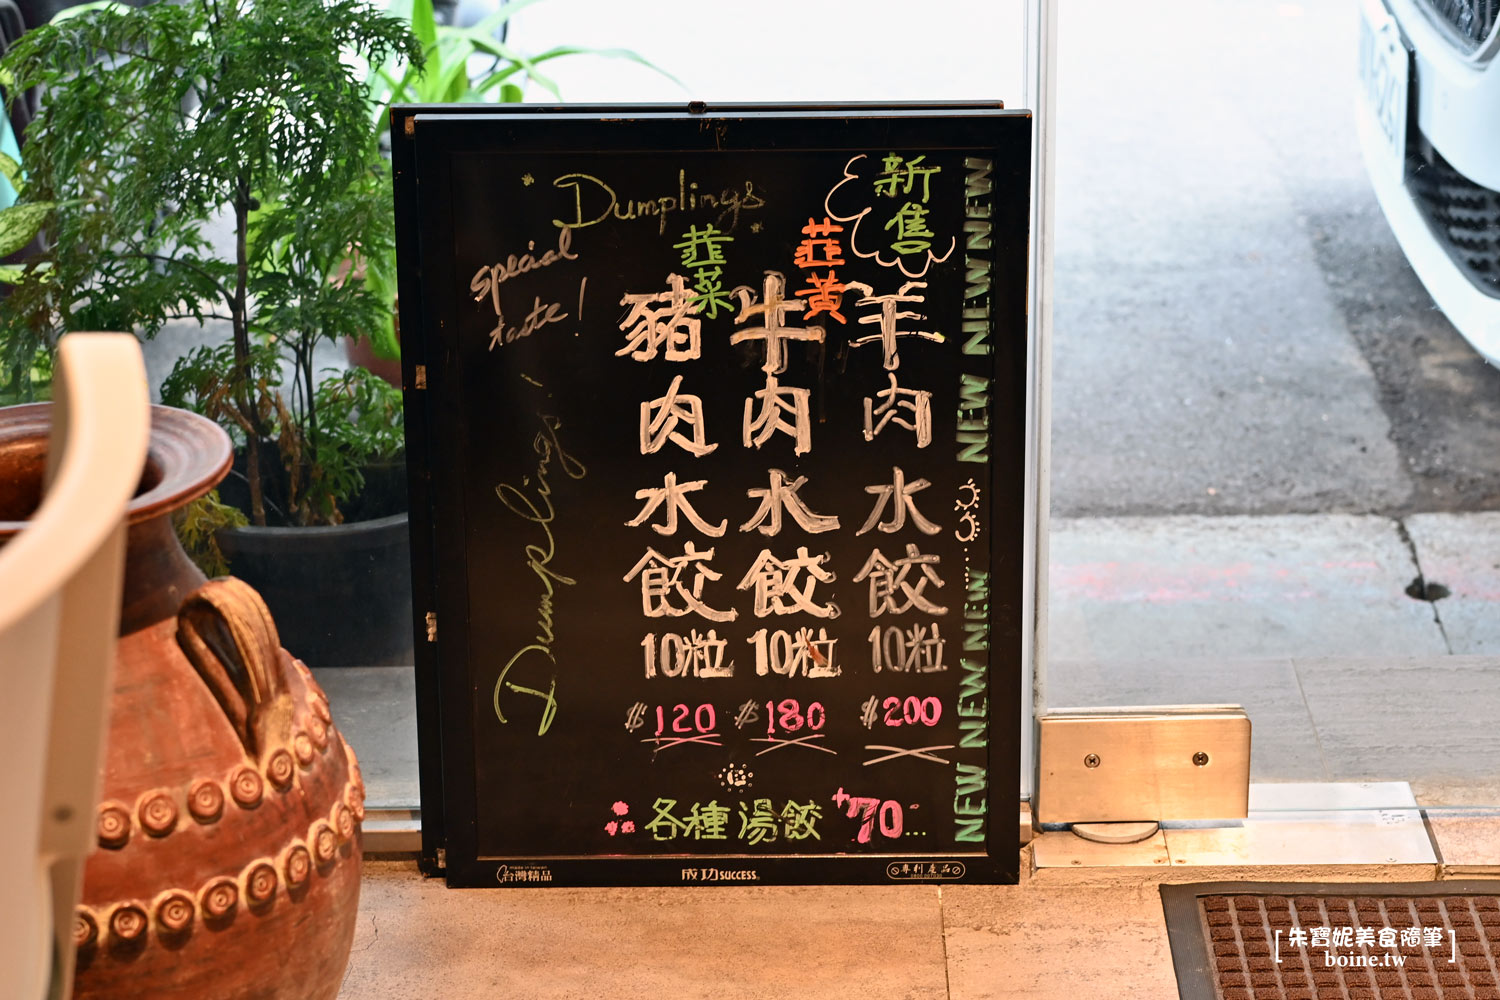 Dumplings
special
taste!
Dumplings
新售
韮菜
豬肉水餃
10粒
$120
韮黃
牛肉水餃
10粒
$180
羊肉水餃
10粒
$200
NEW NEW NEW NEW
NEW NEW NEW
各種湯餃 +70...
台灣精品
成功 SUCCESS
專利產品
朱寶妮美食隨筆
boine.tw